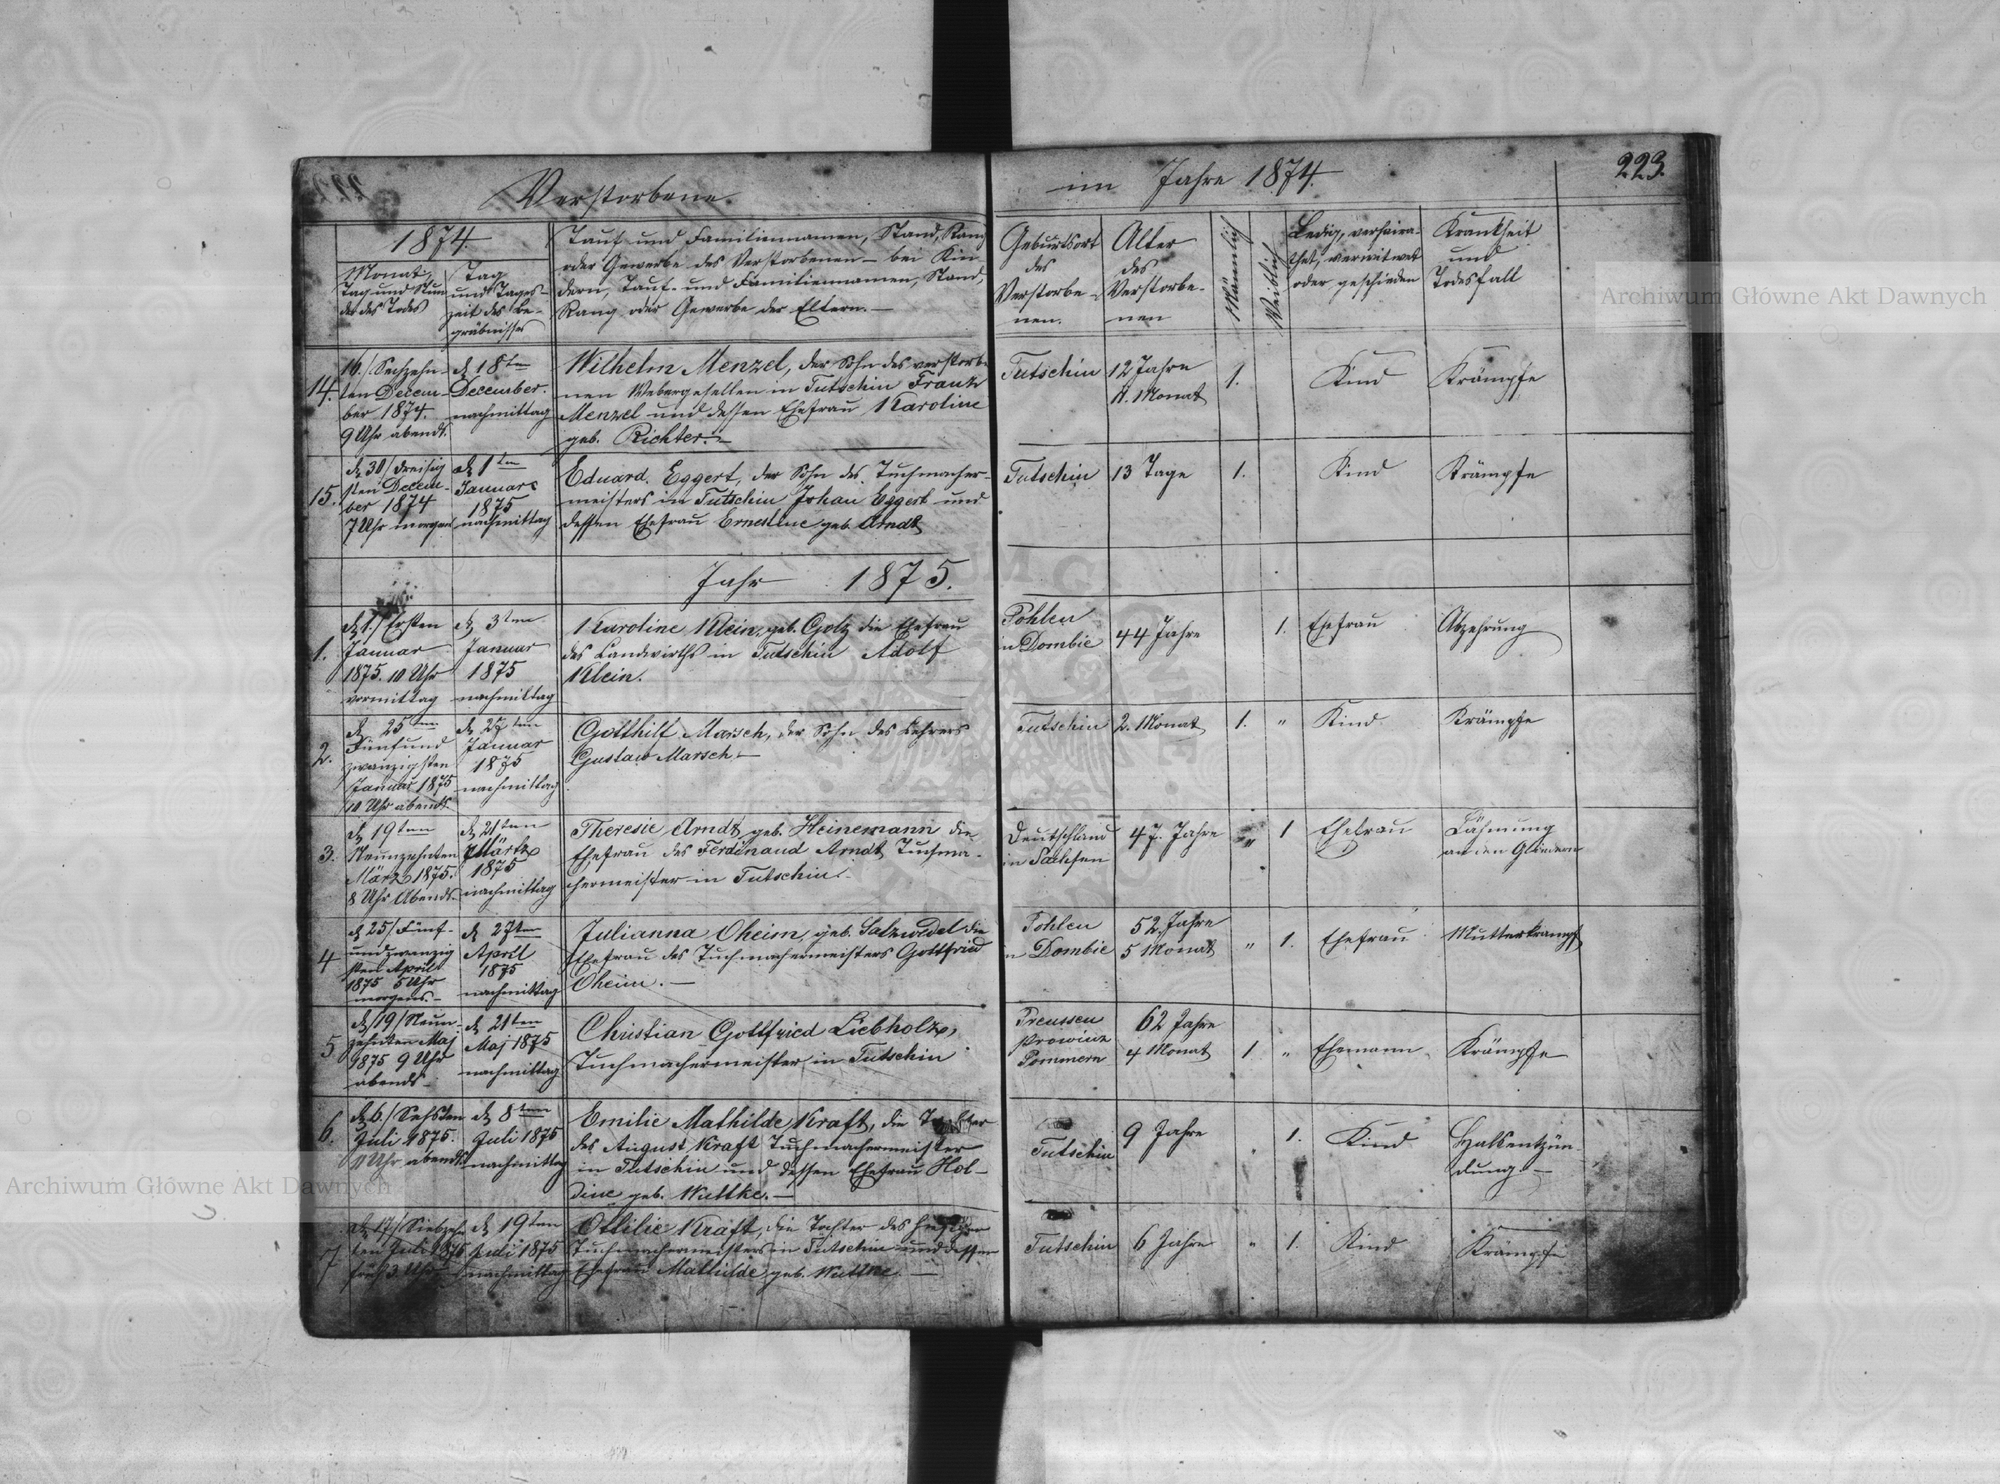 223.
Verstorbene
im Jahre 1874.
1874.
Monat,
Tag und Stun
de des Todes
Tag
und Tages-
zeit des Be-
gräbnisses
Tauf- und Familiennamen, Stand, Rang
oder Gewerbe des Verstorbenen – bei Kin
dern, Tauf- und Familiennamen, Stand,
Rang oder Gewerbe der Eltern. –
Geburtsort
des
Verstorbe-
nen.
Alter
des
Verstorbe-
nen
Männlich
Weiblich
Ledig, verheira-
thet, verwitwet
oder geschieden
Krankheit
und
Todesfall
14.
16./ Sechzehn-
ten Decem-
ber 1874.
9 Uhr abends.
d. 18ten
December.
nachmittag
Wilhelm Menzel, der Sohn des verstorbe
nen Webergesellen in Tutschin Frank
Menzel und dessen Ehefrau Karoline
geb. Richter. –
Tutschin
12 Jahre
Monat
1.
Kind
Krämpfe
15.
d. 30/ dreisig
sten Decem-
ber 1874
7 Uhr morgens
d. 1ten
Januar
1875
nachmittag
Eduard Eggert, der Sohn des Tuchmacher-
meisters in Tutschin Johan Eggert und
dessen Ehefrau Ernestine geb. Arndt
Tutschin
13 Tage
1.
Kind
Krämpfe
Jahr 1875.
1.
d. 1./ Ersten
Januar
1875. 10 Uhr
vormittag
d. 3ten
Januar
1875
nachmittag
Karoline Klein, geb. Golz die Ehefrau
des Landwirths in Tutschin Adolf
Klein.
Pohlen
in Dombie
44 Jahre
1.
Ehefrau
Abzehrung
2.
d. 25ten
Fünfund
zwanzigsten
Januar 1875
10 Uhr abends
d. 27ten
Januar
1875
nachmittag
Gotthilf Marsch, der Sohn des Lehrers
Gustaw Marsch. –
Tutschin
2. Monat
1.
"
Kind
Krämpfe
3.
d. 19ten
Neunzehnten
März 1875.
8 Uhr Abends.
d. 21ten
März
1875
nachmittag
Theresie Arndt geb. Heinemann die
Ehefrau des Ferdinand Arndt Tuchma-
chermeister in Tutschin. –
Deutschland
in Sachsen
47. Jahre
"
1
Ehefrau
Lähmung
an den Gliedern
4
d. 25/ Fünf-
undzwanzig
sten April
1875 5 Uhr
morgens. –
d. 27ten
April
1875
nachmittag
Julianna Oheim, geb. Salzwedel die
Ehefrau des Tuchmachermeisters Gottfried
Oheim. –
Pohlen
in Dombie
52 Jahre
5 Monat
"
1.
Ehefrau
Mutterkrampf
5
d. 19/ Neun-
zehnten Maj
1875 9 Uhr
abends –
d. 21ten
Maj 1875
nachmittag
Christian Gottfried Liebholz,
Tuchmachermeister in Tutschin
Preussen
Prowinz
Pommern
62 Jahre
4 Monat
1
"
Ehemann
Krämpfe
6.
d. 6./ Sechsten
Juli 1875.
Uhr abends
d. 8ten
Juli 1875
nachmittag
Emilie Mathilde Kraft, die Tochter
des August Kraft Tuchmachermeister
in Tutschin und dessen Ehefrau Hol-
dine geb. Wuttke. –
Tutschin
9 Jahre
1.
Kind
Halsentzün
dung. –
7
d. 17/ Siebzehn
ten Juli 1875
früh 3 Uhr
d. 19ten
Juli 1875
nachmittag
Ottilie Kraft, die Tochter des hiesigen
Tuchmachermeisters in Tutschin und dessen
Ehefrau Mathilde geb. Wuttke. –
Tutschin
6 Jahre
"
1.
Kind
Krämpfe
Archiwum Główne Akt Dawnych
Archiwum Główne Akt Dawnych